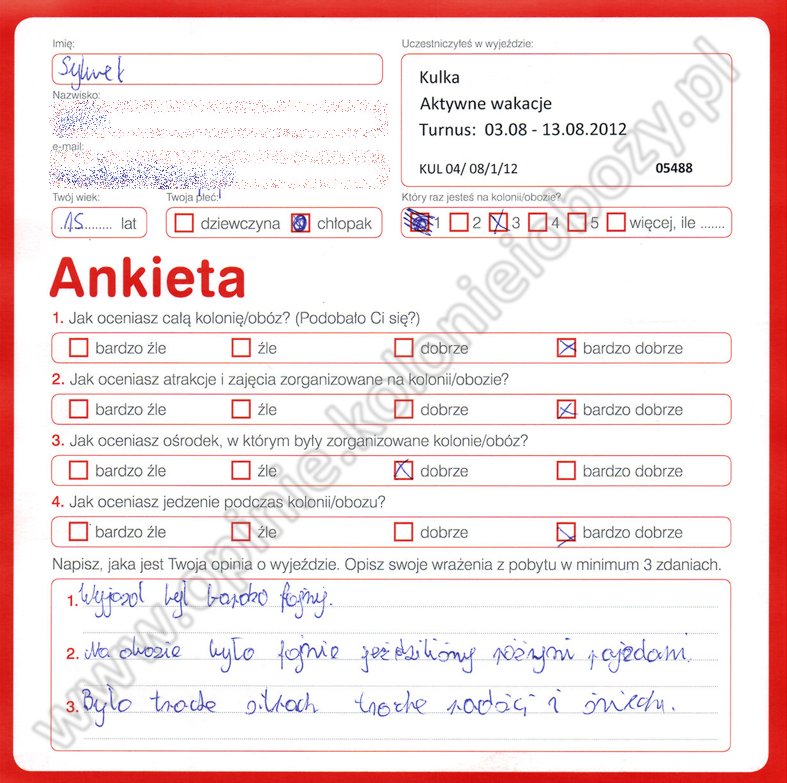 Imię:
Sylwek
Uczestniczyłeś w wyjeździe:
Kulka
Aktywne wakacje
Turnus: 03.08 - 13.08.2012
KUL 04/ 08/1/12 05488
Nazwisko:
e-mail:
Twój wiek:
15 lat
Twoja płeć:
dziewczyna chłopak
Który raz jesteś na kolonii/obozie?
1 2 3 4 5 więcej, ile .......
Ankieta
1. Jak oceniasz całą kolonię/obóz? (Podobało Ci się?)
bardzo źle źle dobrze bardzo dobrze
2. Jak oceniasz atrakcje i zajęcia zorganizowane na kolonii/obozie?
bardzo źle źle dobrze bardzo dobrze
3. Jak oceniasz ośrodek, w którym były zorganizowane kolonie/obóz?
bardzo źle źle dobrze bardzo dobrze
4. Jak oceniasz jedzenie podczas kolonii/obozu?
bardzo źle źle dobrze bardzo dobrze
Napisz, jaka jest Twoja opinia o wyjeździe. Opisz swoje wrażenia z pobytu w minimum 3 zdaniach.
1. Wyjazd był bardzo fajny.
2. Na obozie było fajnie jeździliśmy różnymi pojazdami.
3. Było trochę strach trochę radości i śmiechu.
www.opinie.kolonieiobozy.pl